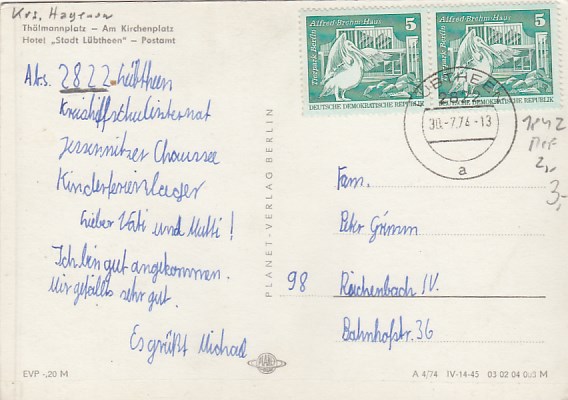 Krs. Hagenow
Thälmannplatz – Am Kirchenplatz
Hotel „Stadt Lübtheen" – Postamt
Abs. 2822 Lübtheen
Kreishilfsschulinternat
Jessenitzer Chaussee
Kinderferienlager
Lieber Vati und Mutti!
Ich bin gut angekommen.
Mir gefällts sehr gut.
Es grüßt Michael
EVP -,20 M
PLANET-VERLAG BERLIN
PLANET
Alfred-Brehm-Haus 5
Tierpark Berlin
DEUTSCHE DEMOKRATISCHE REPUBLIK
Alfred-Brehm-Haus 5
Tierpark Berlin
DEUTSCHE DEMOKRATISCHE REPUBLIK
30.-7.74-13
a
1842
MeF
2,-
3,-
Fam.
Peter Grimm
98 Reichenbach IV.
Bahnhofstr. 36
A 4/74 IV-14-45 03 02 04 003 M